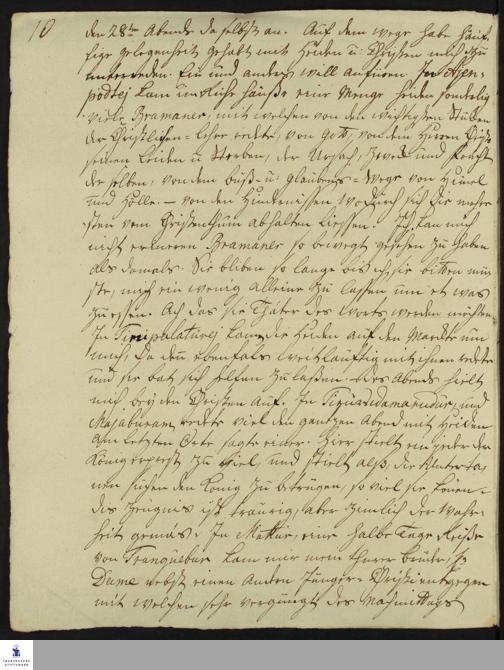 10
den 28ten Abends daselbst an. Auf dem wege habe häuf-
fige gelegenheit gehabt mit Heiden u: Christen mich zu
unterreden. Ein und anders will anfüren. In
kam ins Ruhe Hauße eine Menge Heiden sonderlich
viele Bramaner, mit welchen von den wichtigsten Stücken
der Christlichen-Lehre redete, von Gott, von dem Herrn Christo
seinen Leiden u Sterben, der Ursach, Zweck und Frucht
derselben, von dem Buß- u: Glaubens-Wege von Himel
und Hölle. – von den Hindernissen wodurch sich die mehre-
sten vom Christenthum abhalten liessen. Ich kan mich
nicht erineren Bramaner so bewegt gesehen zu haben
als damals. Sie bliben so lange bis ich sie bitten mus-
ste, mich ein wenig alleine zu lassen um etwas
zu essen. Ach das sie Thäter des Worts werden möchten.
In kamen die Heiden auf dem Marckte um
mich, da den ebenfals weitläuftig mit ihnen redete
und sie bat sich helfen zu laßen. Des Abends hielt
mich bey den Christen auf. In und
Majaburam redete viel den gantzen Abend mit Heiden
Am letzten Orte sagte einer: Hier stielt ein jeder der
König erpreßt zu viel, und stielt also, die Unterta-
nen suchen den König zu betrügen, so viel sie könen-
Das Zeugnis ist traurig, aber zimlich der Wahr-
heit gemäs. In eine halbe Tage Reiße
von Tranquebar kam mir mein theurer Bruder H.
Dame nebst einen andern Jünger-Christi entgegen
mit welchen sehr vergnügt des Nachmittags
FRANCKESCHE
STIFTUNGEN